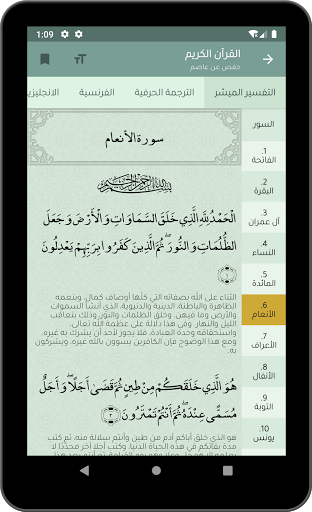 1:09
القرآن الكريم
حفص عن عاصم
التفسير الميسر
الترجمة الحرفية
الفرنسية
الانجليزية
السور
1. الفاتحة
2. البقرة
3. آل عمران
4. النساء
5. المائدة
6. الأنعام
7. الأعراف
8. الأنفال
9. التوبة
10. يونس
سورة الأنعام
بِسْمِ اللَّهِ الرَّحْمَٰنِ الرَّحِيمِ
الْحَمْدُ لِلَّهِ الَّذِي خَلَقَ السَّمَاوَاتِ وَالْأَرْضَ وَجَعَلَ
الظُّلُمَاتِ وَالنُّورَ ۖ ثُمَّ الَّذِينَ كَفَرُوا بِرَبِّهِمْ يَعْدِلُونَ
﴿١﴾
الثناء على الله بصفاته التي كلُّها أوصاف كمال، وبنعمه
الظاهرة والباطنة، الدينية والدنيوية، الذي أنشأ السموات
والأرض وما فيهن، وخلق الظلمات والنور، وذلك بتعاقب
الليل والنهار. وفي هذا دلالة على عظمة الله تعالى،
واستحقاقه وحده العبادة، فلا يجوز لأحد أن يشرك به غيره.
ومع هذا الوضوح فإن الكافرين يسوون بالله غيره، ويشركون
به.
هُوَ الَّذِي خَلَقَكُمْ مِنْ طِينٍ ثُمَّ قَضَىٰ أَجَلًا ۖ وَأَجَلٌ
مُسَمًّى عِنْدَهُ ۖ ثُمَّ أَنْتُمْ تَمْتَرُونَ ﴿٢﴾
هو الذي خلق أباكم آدم من طين وأنتم سلالة منه، ثم كتب
مدة بقائكم في هذه الحياة الدنيا، وكتب أجلا آخر محددًا لا